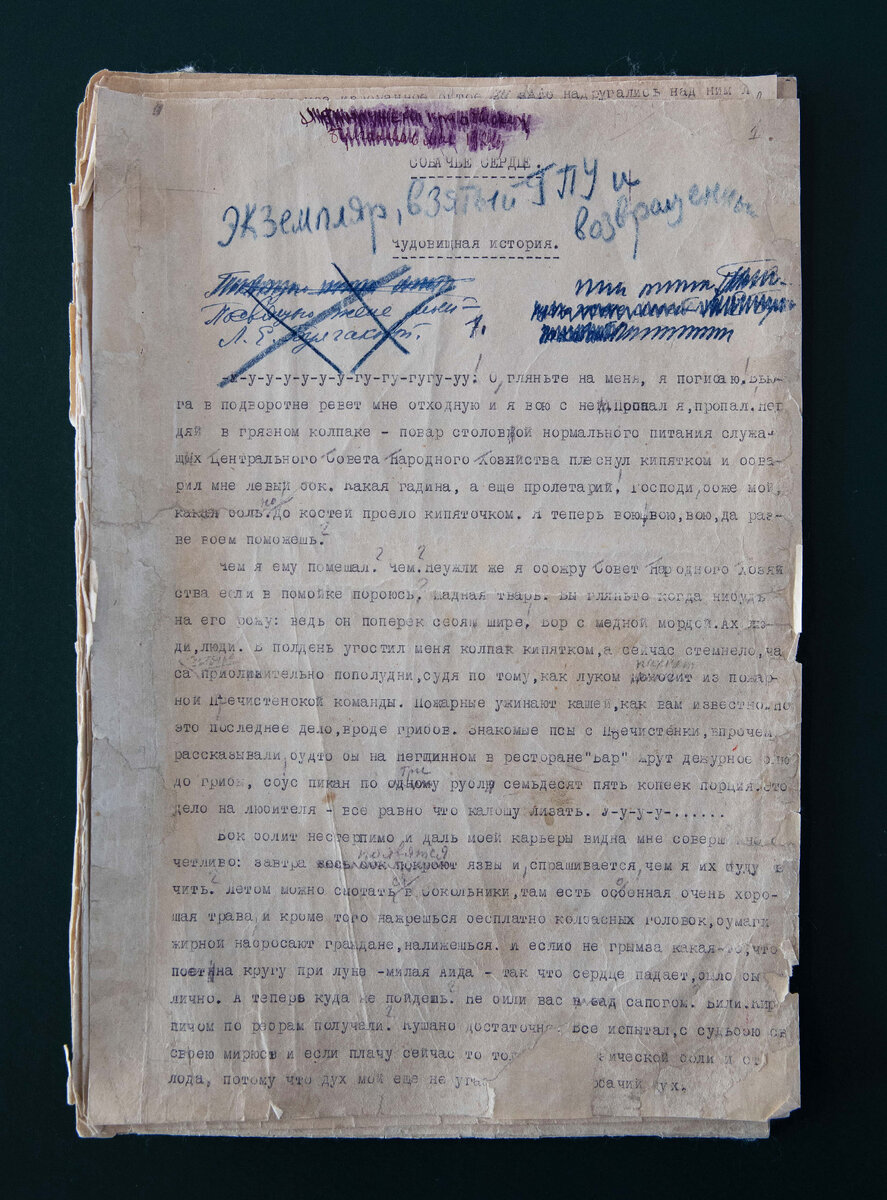 надругались над ним
1.
СОБАЧЬЕ СЕРДЦЕ.
Экземпляр, взятый ГПУ и
возвращенный
Чудовищная история.
Посвящаю жене моей
Л. Е. Булгаковой.
1.
-у-у-у-у-у-у-гу-гу-гугу-уу! О, гляньте на меня, я погибаю! Вью-
га в подворотне ревет мне отходную и я вою с ней. Пропал я, пропал. Нег
дяй в грязном колпаке - повар столовой нормального питания служа-
щих Центрального Совета Народного Хозяйства плеснул кипятком и обва-
рил мне левый бок. Какая гадина, а еще пролетарий! Господи, боже мой,
какая боль. до костей проело кипяточком. Я теперь вою, вою, вою, да раз-
ве воем поможешь?
Чем я ему помешал? Чем? Неужли же я обожру Совет Народного Хозяй
ства если в помойке пороюсь? Жадная тварь. Вы гляньте когда нибудь
на его рожу: ведь он поперек себя шире, Вор с медной мордой. Ах лю-
ди, люди. В полдень угостил меня колпак кипятком, а сейчас стемнело, ча
четыре
са приблизительно пополудни, судя по тому, как луком пахнет из пожар-
ной Пречистенской команды. Пожарные ужинают кашей, как вам известно. Но
это последнее дело, вроде грибов. Знакомые псы с Пречистенки, впрочем
рассказывали, будто бы на Неглинном в ресторане "Бар" жрут дежурное блю
три
до грибы, соус пикан по одному рублю семьдесят пять копеек порция. Это
дело на любителя - все равно что калошу лизать. У-у-у-у-......
Бок болит нестерпимо и даль моей карьеры видна мне соверш
появятся
четливо: завтра весь бок покроют язвы и, спрашивается, чем я их буду
чить? Летом можно смотать в Сокольники, там есть особенная очень хоро-
шая трава и кроме того нажрешься бесплатно колбасных головок, бумаги
жирной набросают граждане, налижешься. И еслиб не грымза какая-то, что
поет на кругу при луне -милая Аида - так что сердце падает, было бы
лично. А теперь куда же пойдешь? Не били вас в зад сапогом? Били. Кир
пичом по ребрам получали? Кушано достаточно. Все испытал, с судьбою с
своею мирюсь и если плачу сейчас то ической боли и от
лода, потому что дух мой еще не уга обачий дух.